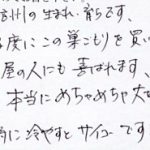 州の生まれ・育ちです、
度にこの巣ごもりを買い
屋の人にも喜ばれます、
本当にめちゃめちゃ大
に冷やすとサイコーです